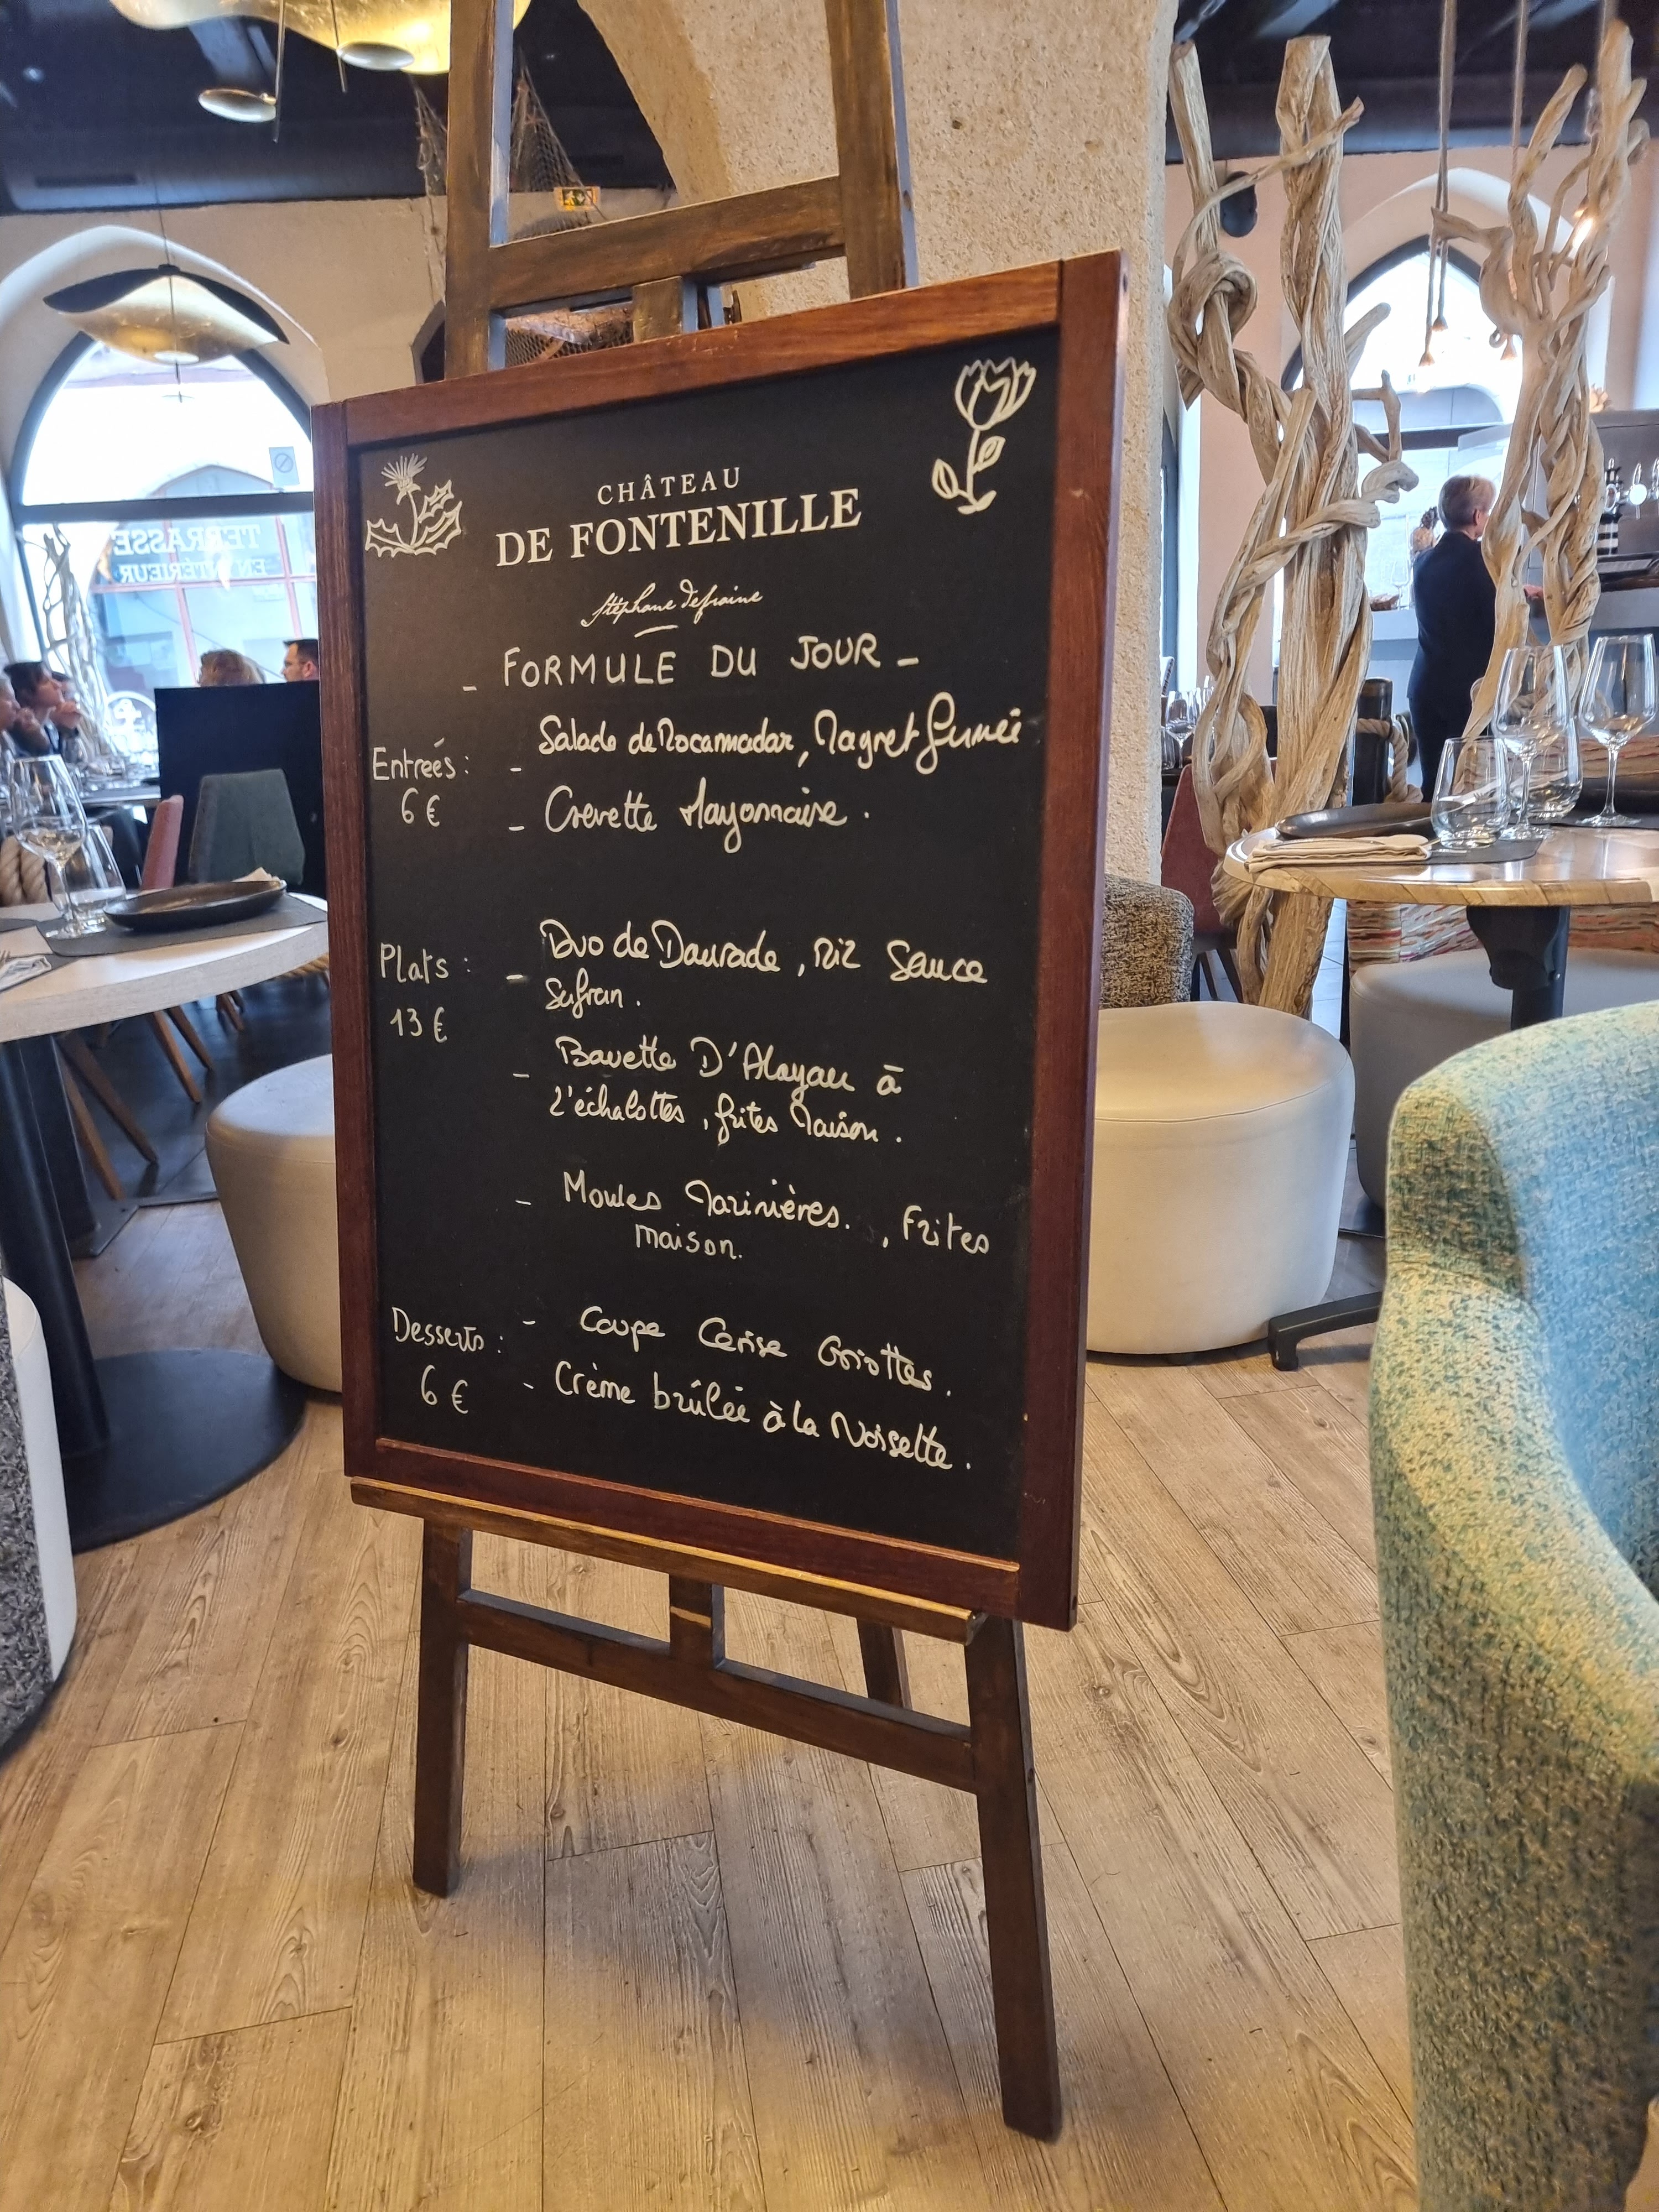 CHÂTEAU
DE FONTENILLE
Stéphane Defraine
- FORMULE DU JOUR -
Entreés : - Salade de Rocamadar, Magret fumée
6 € - Crevette Mayonnaise .
Plats : - Duo de Daurade , Riz Sauce
Safran .
13 €
- Bavette D'Aloyau à
L'échalottes , frites Maison .
- Moules Marinières. , Frites
maison.
Desserts : - Coupe Cerise Griottes .
6 € - Crème brûlée à la Noisette .
TERRASSE
EN INTÉRIEUR